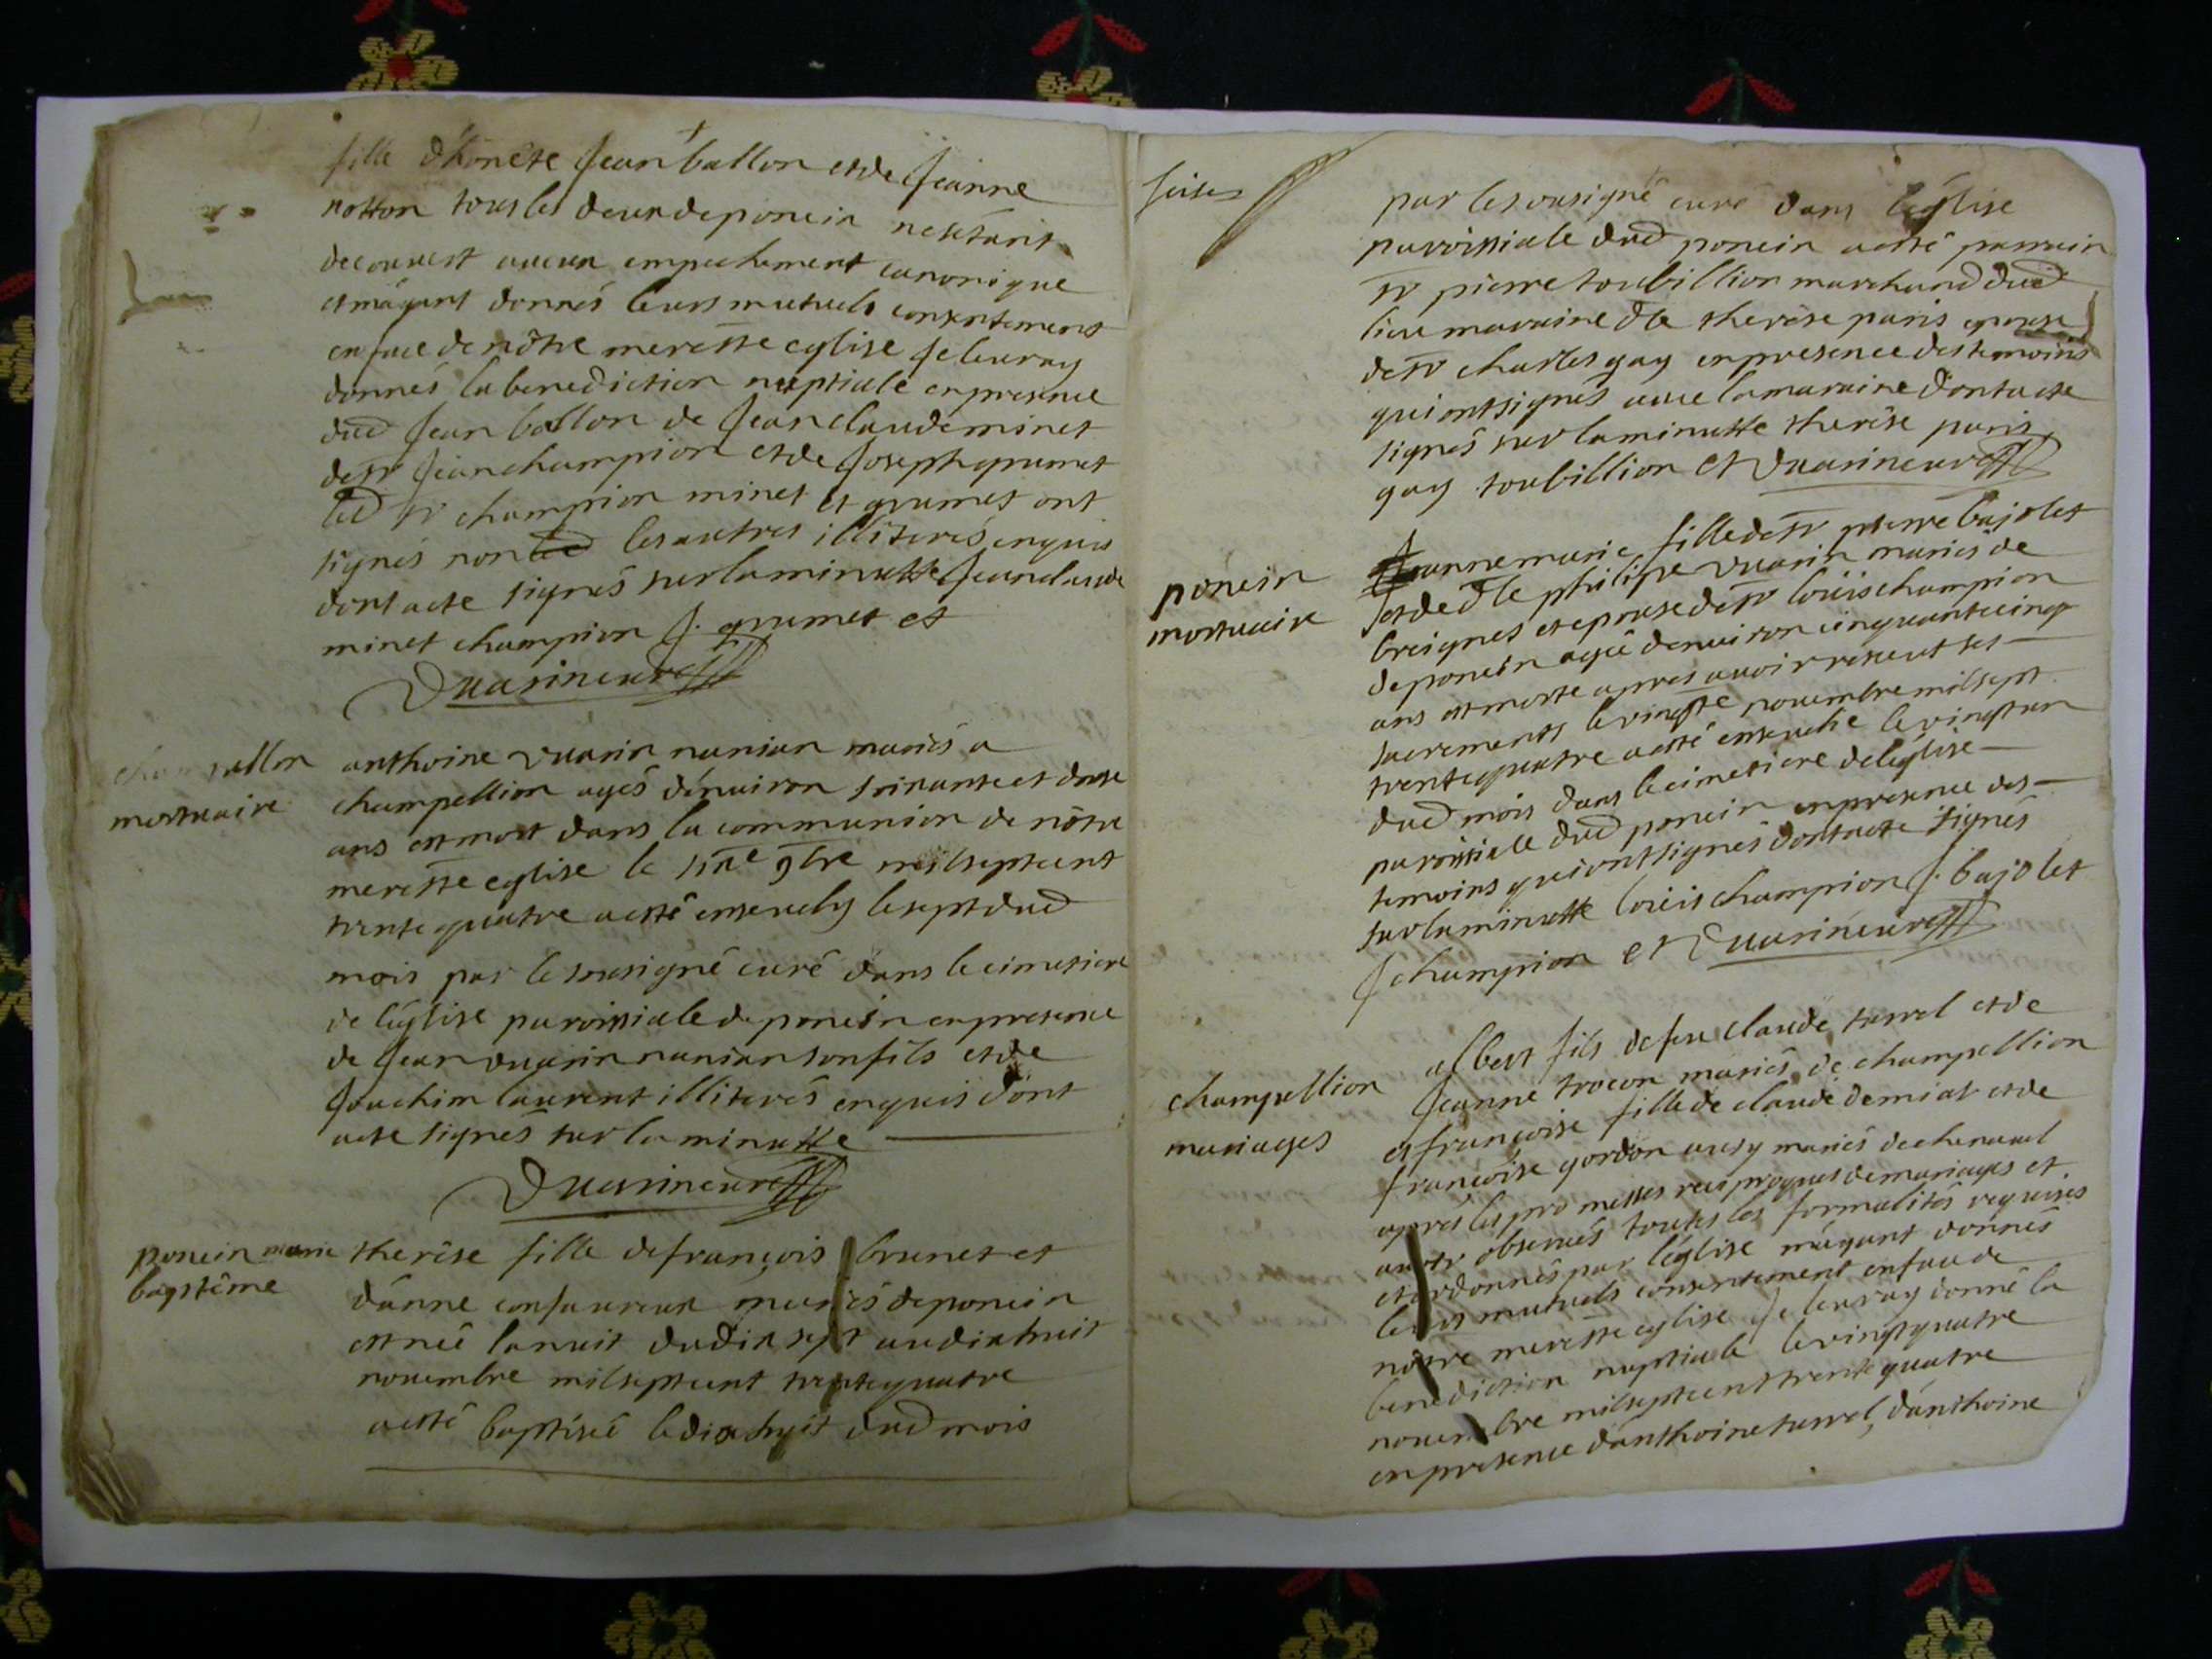 fille d'honete Jean ballon et de Jeanne
notton tous les deux de poncin nestant
decouvert aucun empechement canonique
et m'ayant donnés leurs mutuels consentement
en face de nôtre mere ste eglise Je leur ay
donnés la benediction nuptiale en presence
dud Jean ballon de Jean claude minet
de sr Jean champion et de Joseph grumet
led sr champion minet et grumet ont
signés non les autres illiterés enquis
dont acte signés sur la minutte Jean claude
minet champion J. grumet et
Duarin curé
mortuaire
anthoine vuarin nanian mariés a
champellion agés d'enuiron soixante et douse
ans est mort dans la communion de nôtre
mere ste eglise le sixe 9bre mil sept cent
trente quatre a esté enseuely le sept dud
mois par le sousigné curé dans le cimetiere
de l'église paroissiale de poncin en presence
de Jean vuarin nanian son fils et de
Joachim laurent illiterés enquis dont
acte signés sur la minutte
Duarin curé
poncin marie
baptême
therése fille de françois brunet et
d'anne mariés de poncin
est née la nuit du dix sept au dix huit
nouembre mil sept cent trente quatre
a esté baptisée le dix huit dud mois
par le sousigné curé dans l'église
paroissiale dud poncin a esté parrain
sr pierre toubillion marchand dud
lieu maraine dlle therése paris epouse
de sr charles gay en presence des temoins
qui ont signés auec la maraine dont acte
signés sur la minutte therése paris
gay toubillion et Duarin curé
poncin
mortuaire
Jeanne marie fille de sr pierre bajolet
et de dlle philipe vuarin mariés de
breignes et epouse de sr loüis champion
de poncin agée d'enuiron cinquante cinq
ans est morte apres auoir reseut ses
sacrements le vingte nouembre mil sept
trente quatre a esté enseuelie le vingt un
dud mois dans le cimetiere de l'église
paroissiale dud poncin en presence des
temoins qui ont signés dont acte signés
sur la minutte loüis champion J. bajolet
J champion et Duarin curé
champellion
mariages
albert fils de feu claude tarrel et de
Jeanne trocon mariés de champellion
et françoise fille de claude demiat et de
françoise gordon ausy mariés de chenauel
aprés les promesses reciproques de mariages et
auoir obserués toutes les formalités requises
et ordonnés par l'église m'ayant donnés
leurs mutuels consentement en face de
nôtre mere ste eglise Je leur ay donné la
benediction nuptiale le vingt quatre
nouembre mil sept cent trente quatre
en presence d'anthoine tarrel, d'anthoine